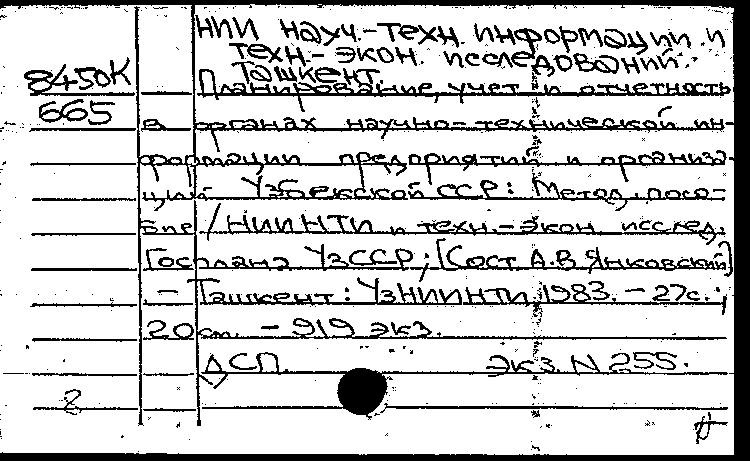 НИИ науч.-техн. информации и
техн.-экон. исследований.
Ташкент.
8450К
665
Планирование, учет и отчетность
в органах научно-технической ин-
формации предприятий и организа-
ций Узбекской ССР: Метод. посо-
бие / НИИНТИ и техн.-экон. исслед.
Госплана УзССР; [Сост. А.В. Янковский]
- Ташкент: УзНИИНТИ, 1983. - 27с.;
20 см. - 919 экз.
ДСП. Экз. N 255.
8